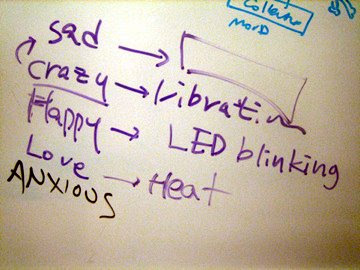 Collective
MOOD
sad →
crazy → Vibration
Happy → LED blinking
Love → Heat
ANXIOUS